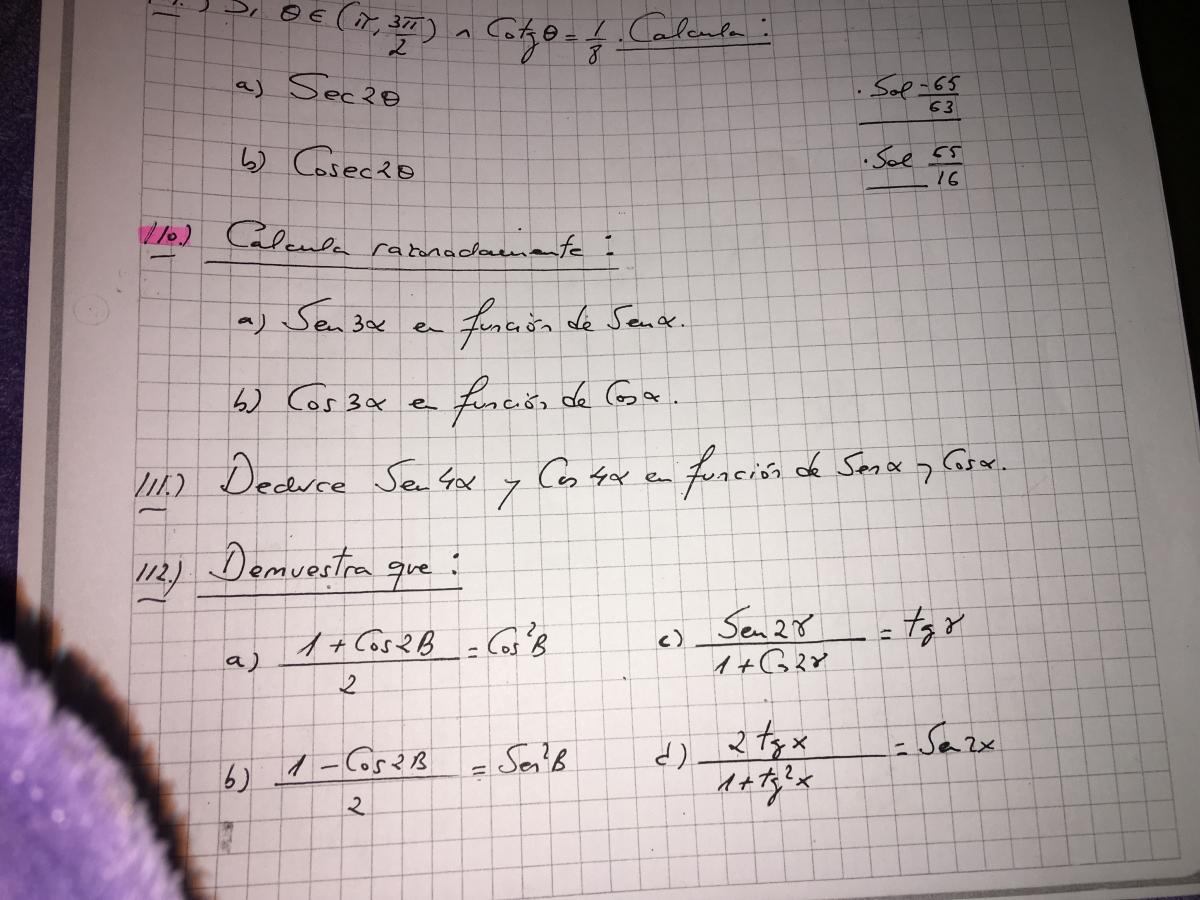 .) Si θ ∈ (π, 3π/2) ∧ Cotgθ = 1/8. Calcula:
a) Sec2θ · Sol -65/63
b) Cosec2θ · Sol 65/16
110.) Calcula razonadamente:
a) Sen3α en función de Senα.
b) Cos3α en función de Cosα.
111.) Deduce Sen4α y Cos4α en función de Senα y Cosα.
112.) Demuestra que:
a) 1 + Cos2B / 2 = Cos²B c) Sen2γ / 1 + Cos2γ = tgγ
b) 1 - Cos2B / 2 = Sen²B d) 2tgx / 1 + tg²x = Sen2x